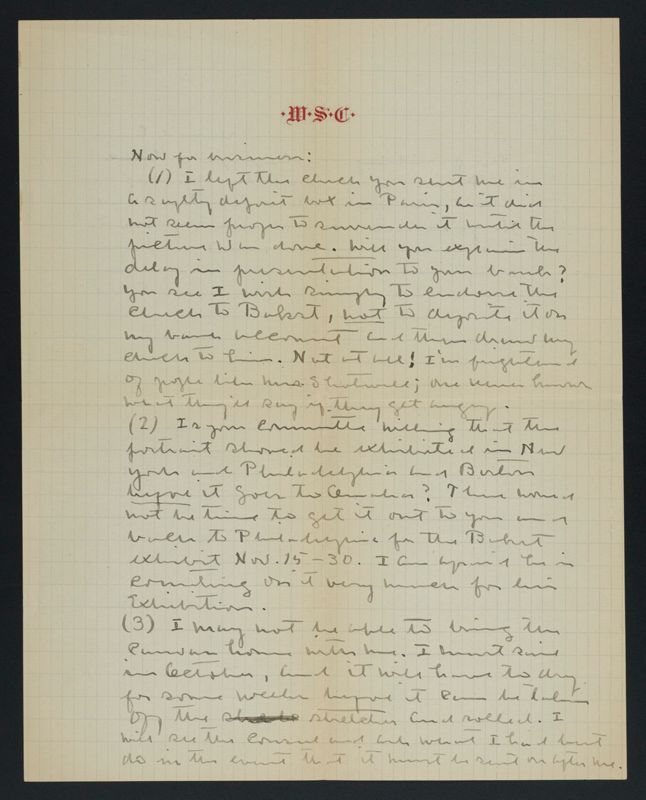 ·W·S·C·
Now for business:
(1) I left the check you sent me in
a safety deposit box in Paris, as it did
not seem proper to surrender it until the
picture was done. Will you explain the
delay in presentation to your bank?
You see I wish simply to endorse the
check to Bakst, not to deposite it on
my bank account and then draw my
check to him. Not at all! I'm frightened
of people like Mrs. ; one never knows
what they'll say if they get angry.
(2) Is your Committee willing that the
portrait should be exhibited in New
York and Philadelphia and Boston
before it goes to Omaha? There would
not be time to get it out to you and
back to Philadelphia for the Bakst
exhibit Nov. 15–30. I am afraid he is
counting on it very much for his
Exhibition.
(3) I may not be able to bring the
canvas home with me. I must sail
in October, and it will have to dry
for some weeks before it can be taken
off the stretcher and rolled. I
will see the Consul and ask what I had best
do in the event that it must be sent on after me.